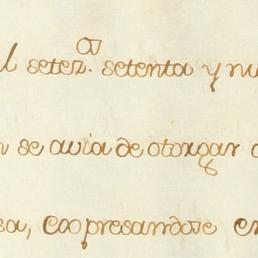 l setez.os setenta y nu
n se avia de otorgar
sa, expresandose en